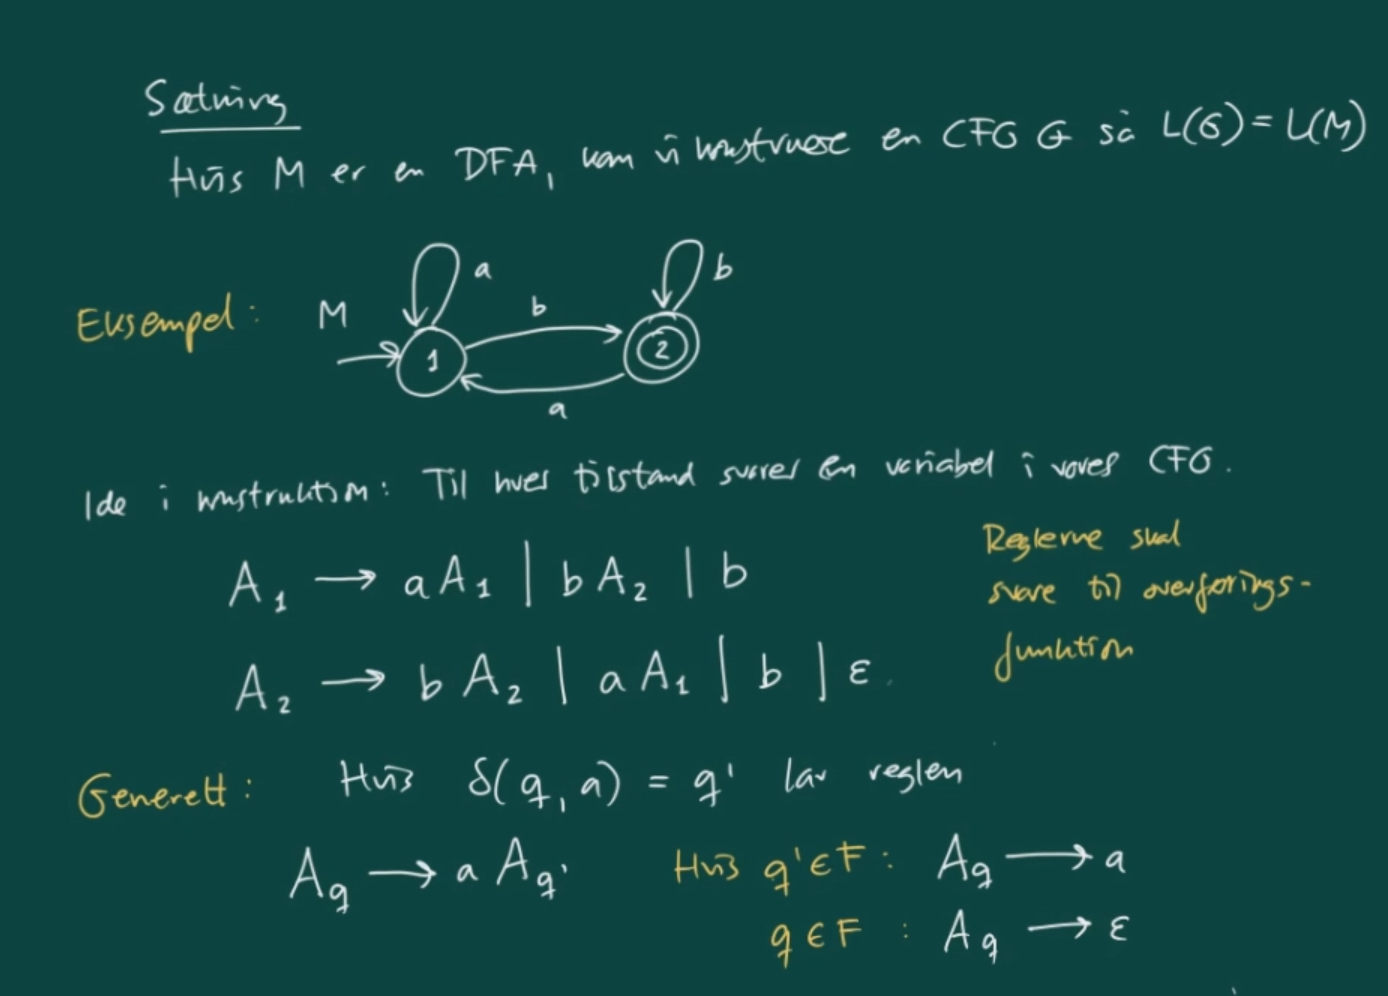 Sætning
Hvis M er en DFA, kan vi konstruere en CFG G så L(G) = L(M)
Eksempel: M
a
b
b
1
2
a
Ide i konstruktion: Til hver tilstand svarer en variabel i vores CFG.
A₁ → aA₁ | bA₂ | b
A₂ → bA₂ | aA₁ | b | ε
Reglerne skal
svare til overførings-
funktion
Generelt: Hvis δ(q, a) = q' lav reglen
A_q → a A_q'
Hvis q' ∈ F : A_q → a
q ∈ F : A_q → ε